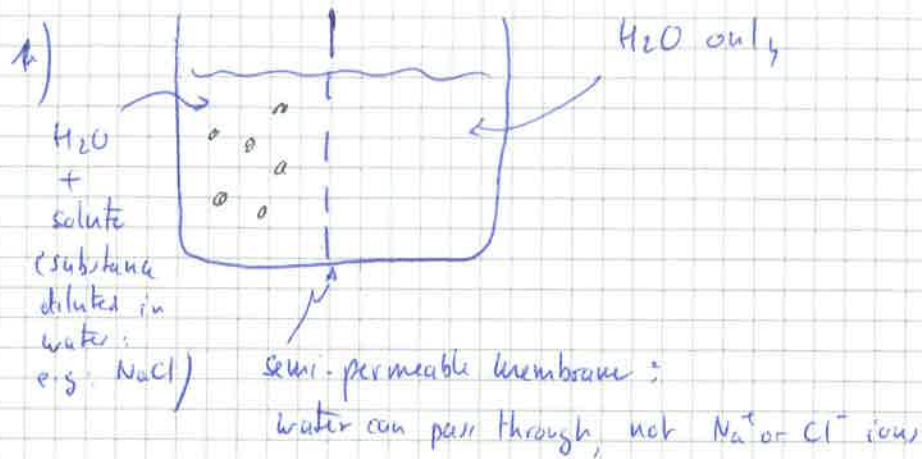 1)
H2O only
H2O
+
solute
(substance
diluted in
water:
e.g: NaCl)
semi-permeable membrane:
water can pass through, not Na+ or Cl- ions